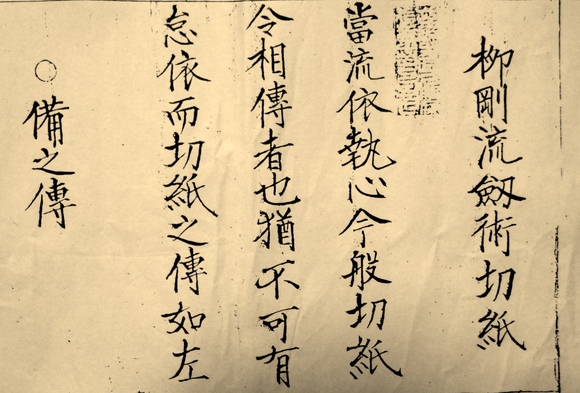 柳剛流劔術切紙
當流依執心今般切紙
令相傳者也猶不可有
怠依而切紙之傳如左
○備之傳